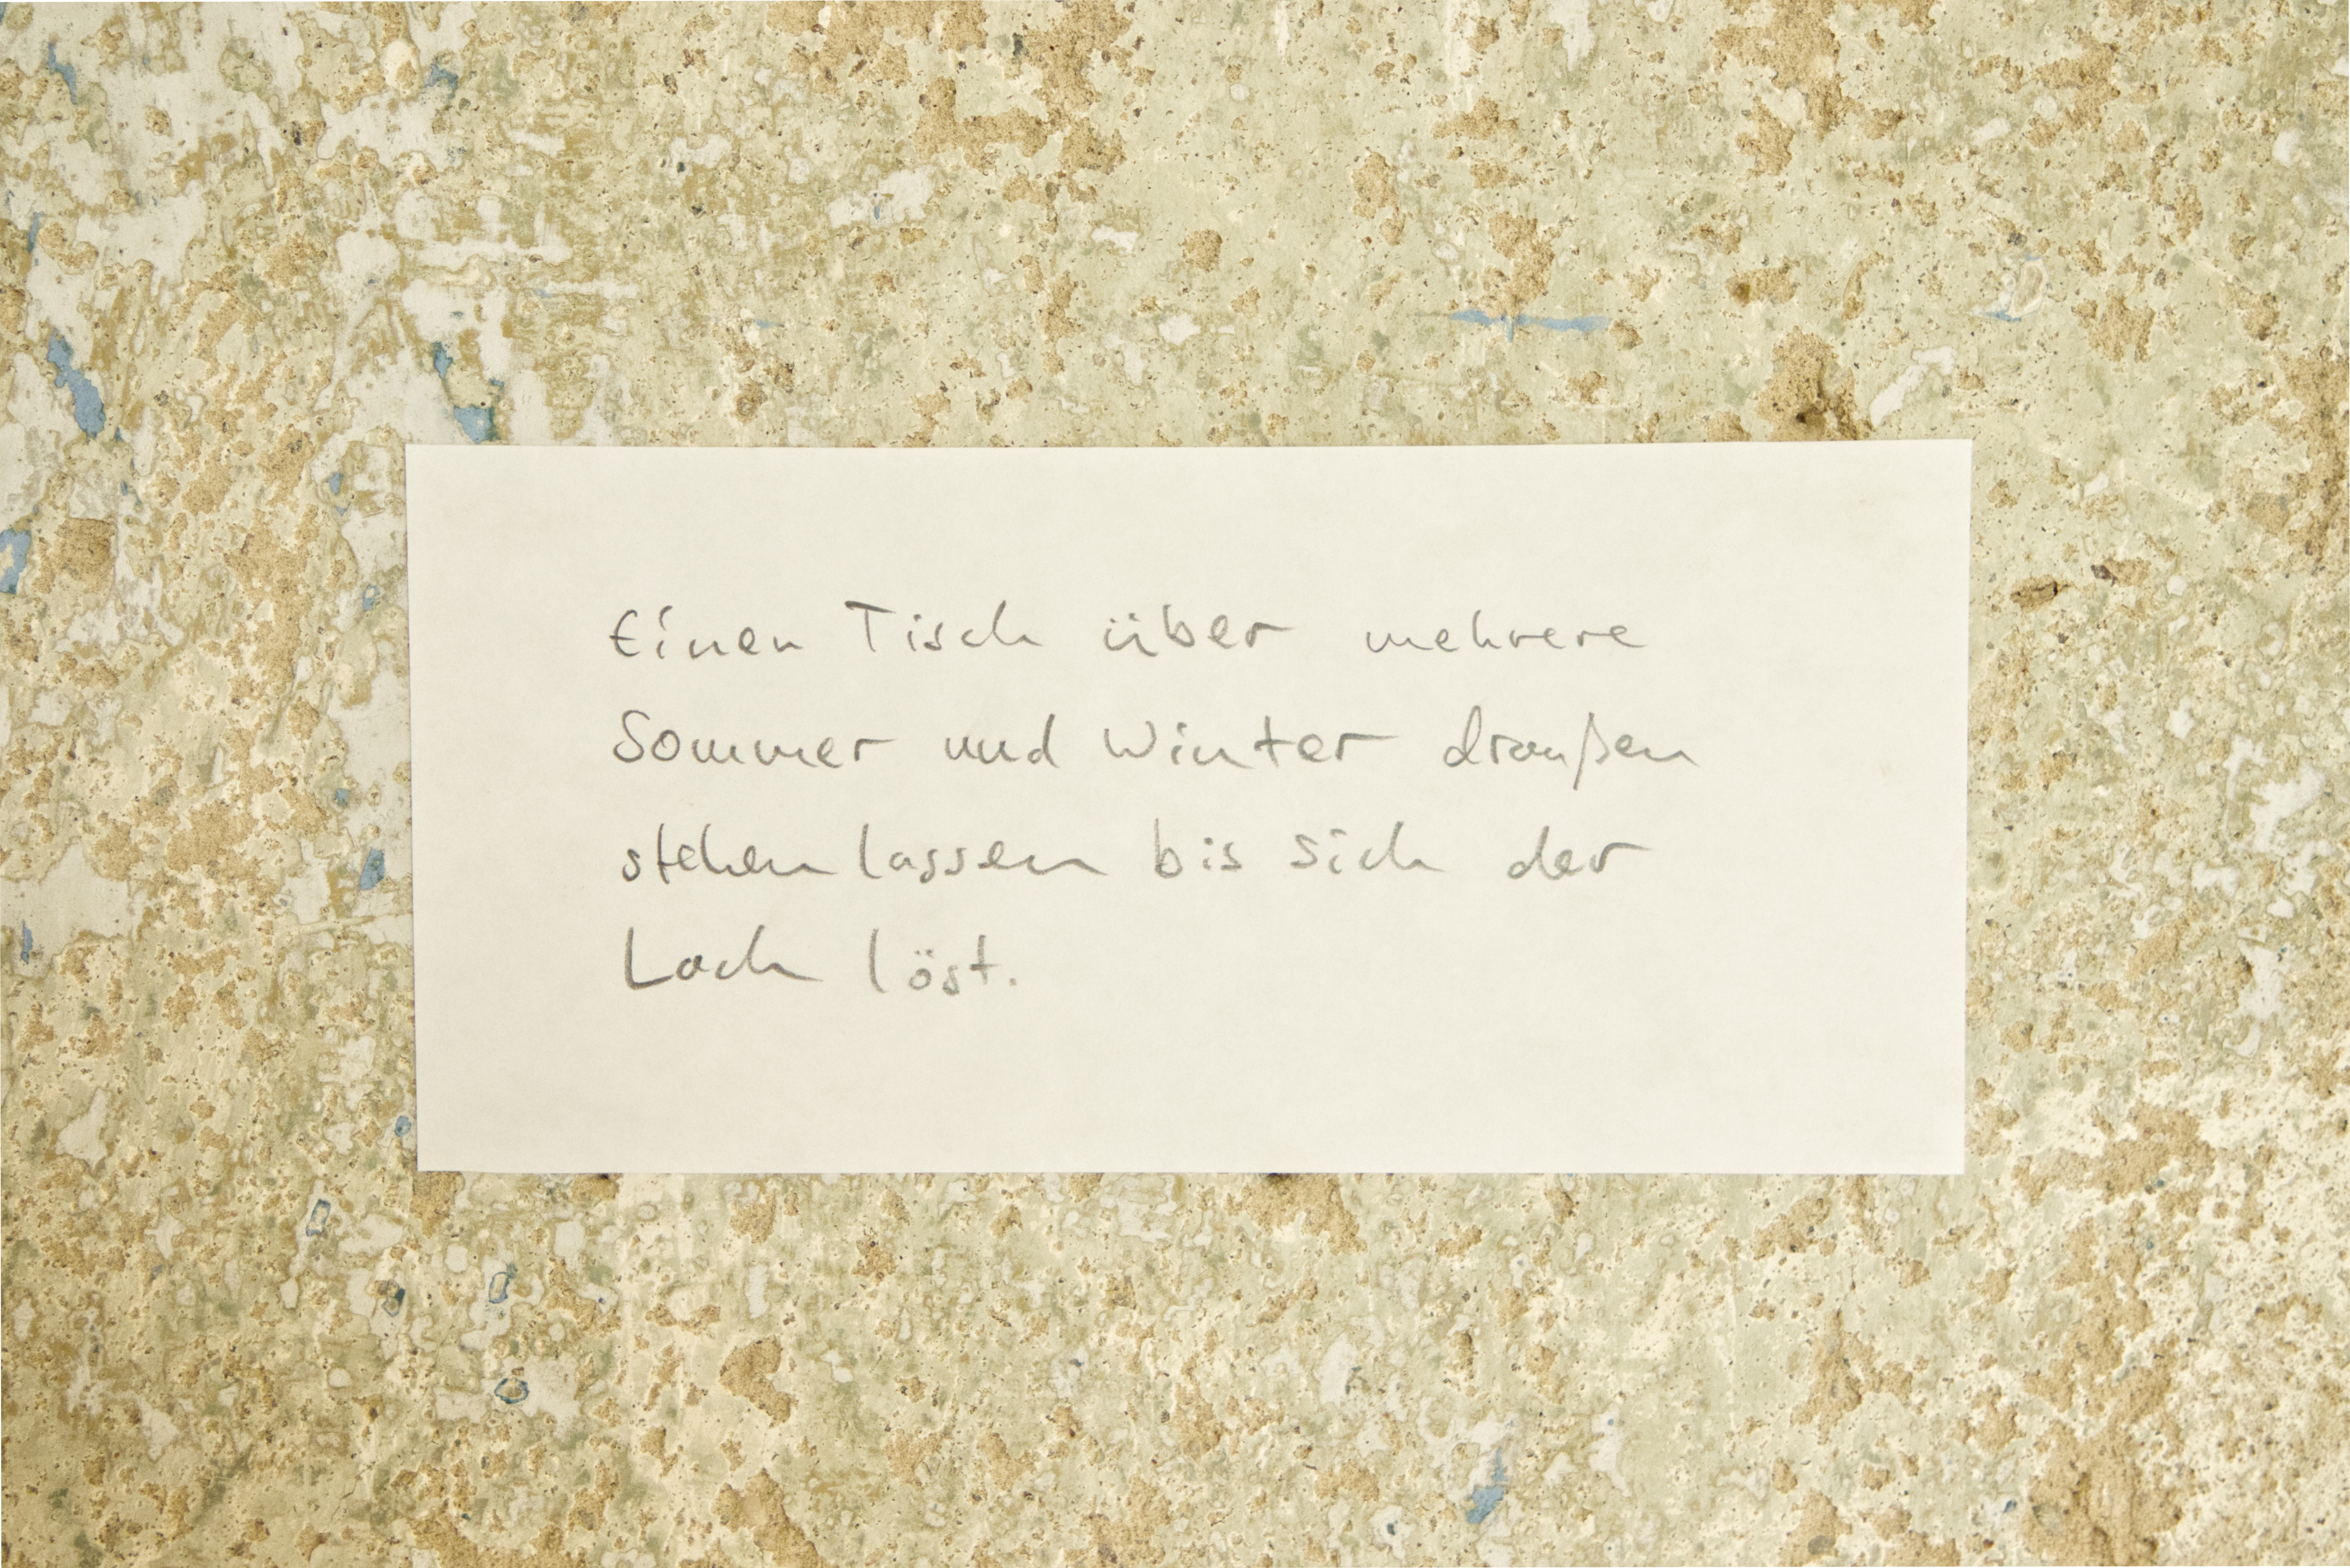 Einen Tisch über mehrere
Sommer und Winter draußen
stehen lassen bis sich der
Lack löst.